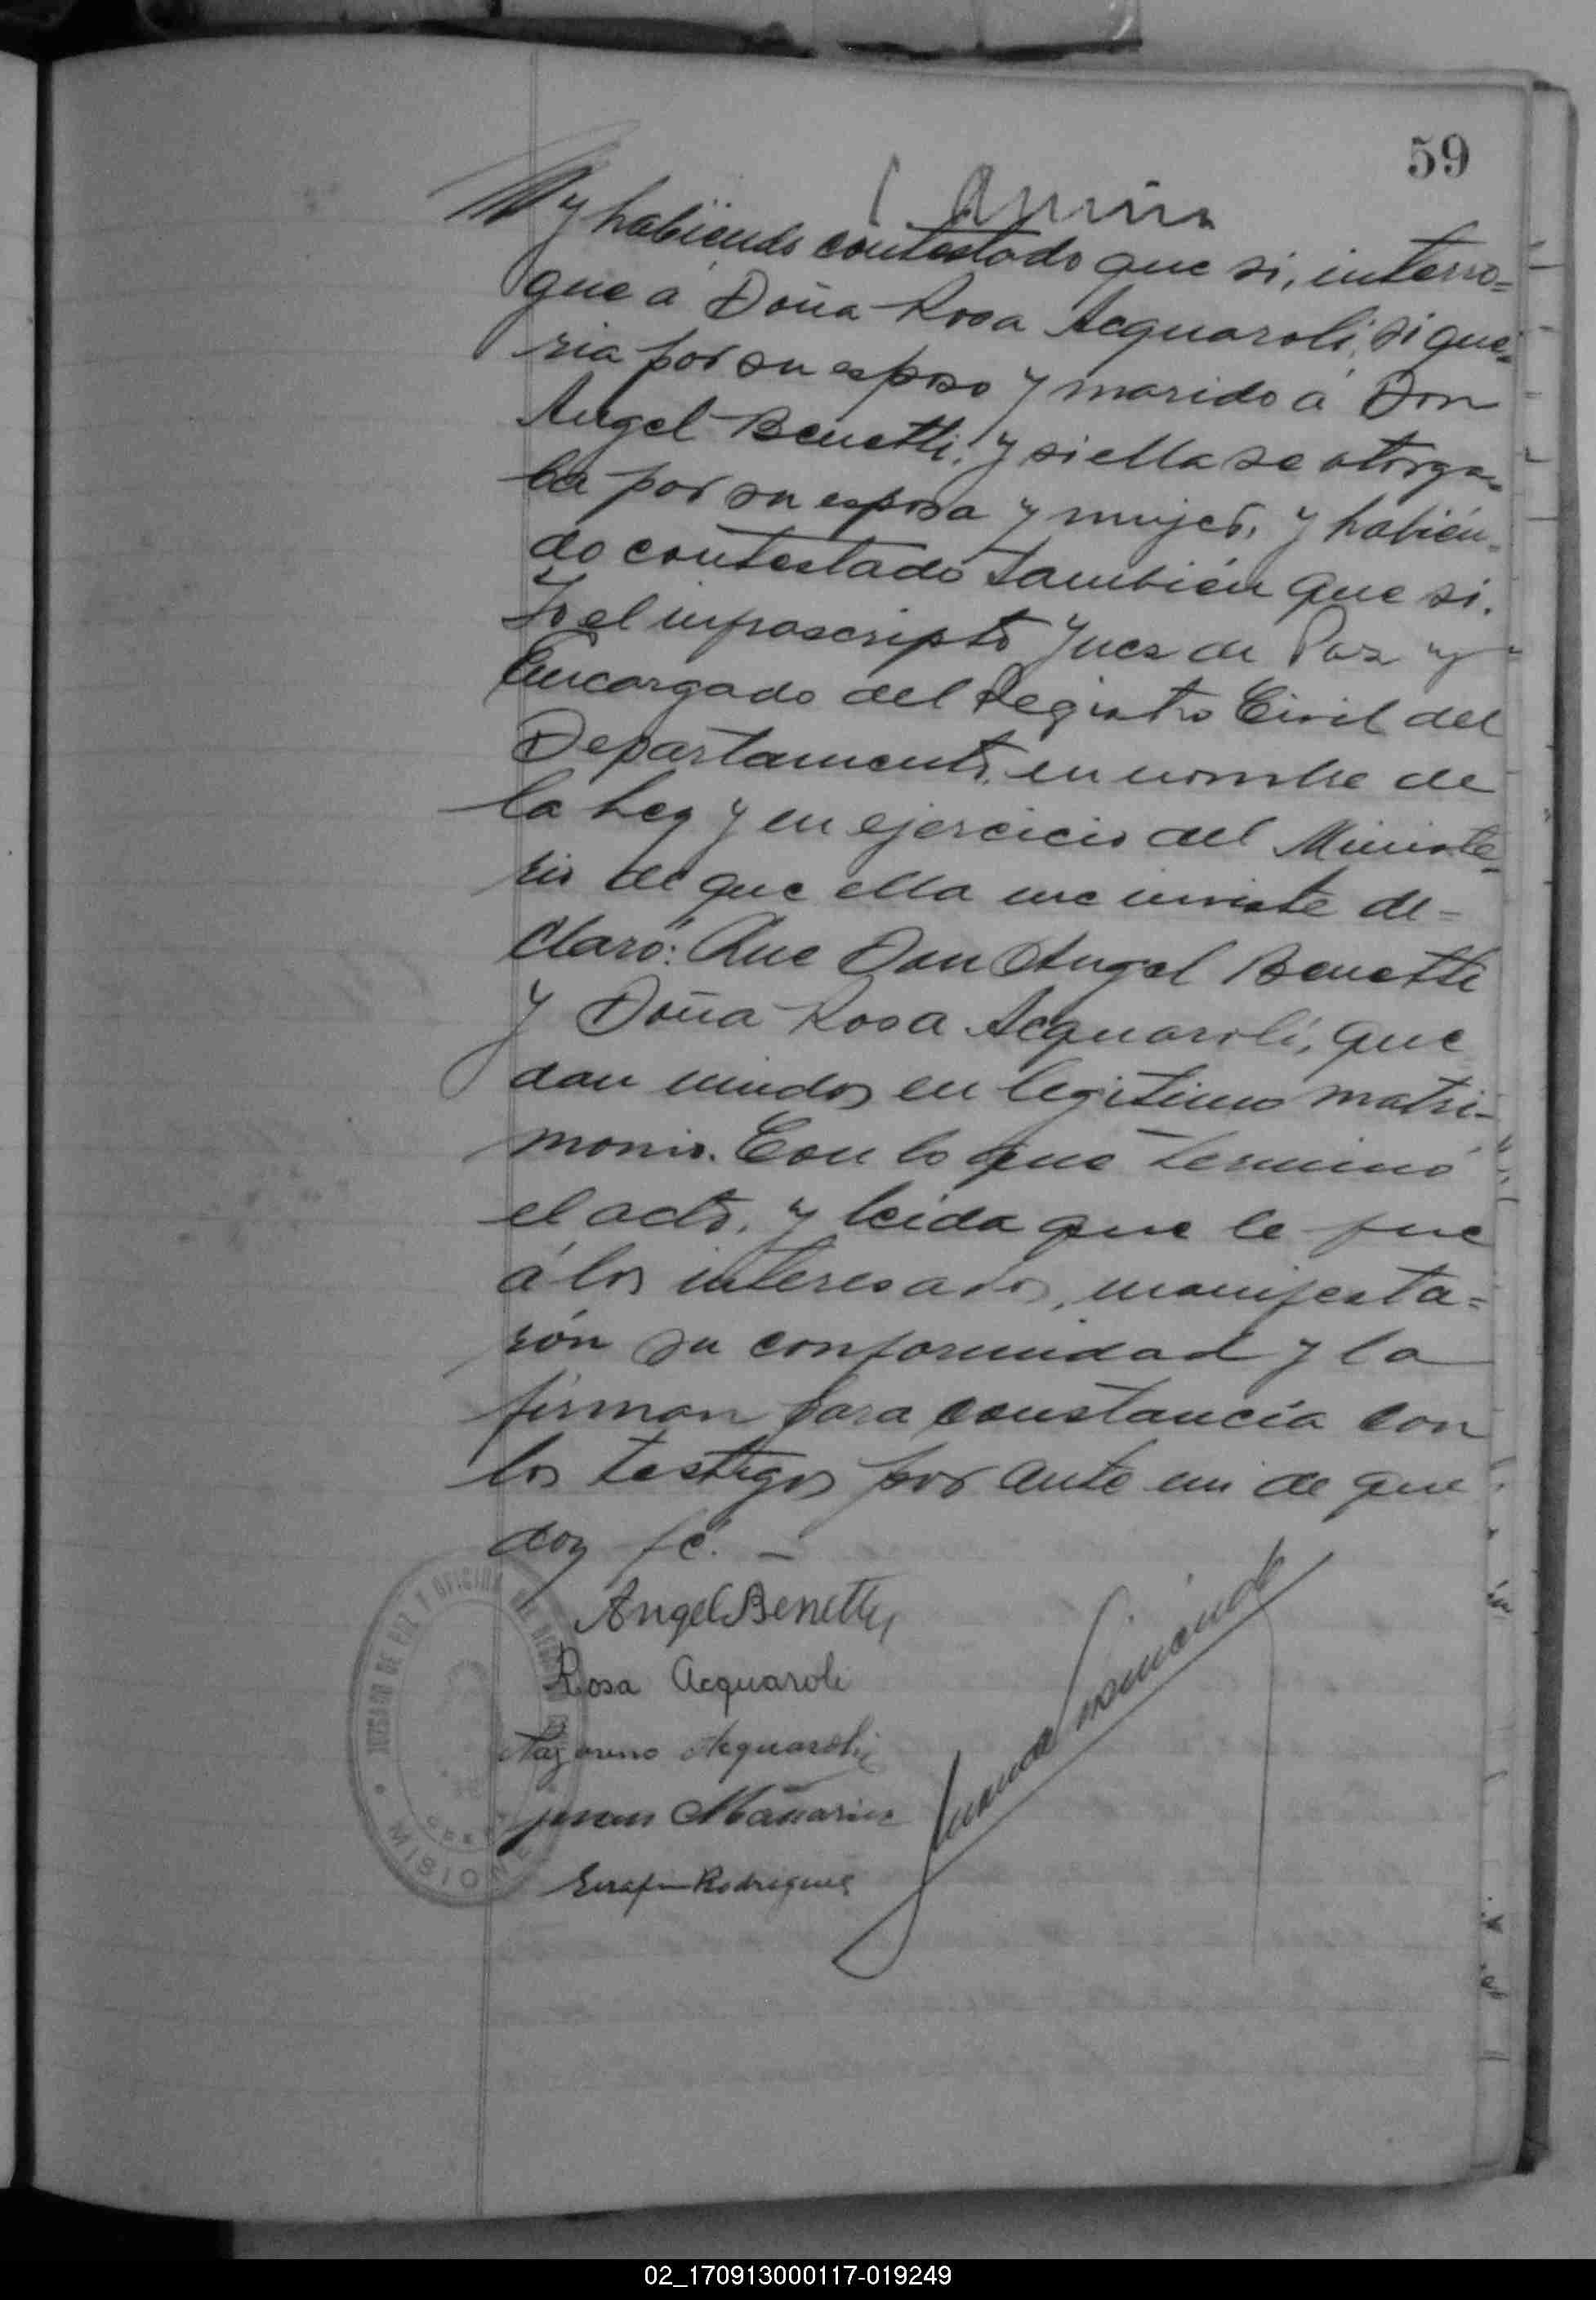 59
y habiendo contestado que si, interro=
gue á Doña Rosa Acquaroli, si que=
ria por su esposo y marido á Don
Angel Benetti, y si ella se otorga=
ba por su esposa y mujer, y habién=
do contestado también que si.
Yo el infrascripto Juez de Paz y
Encargado del Registro Civil del
Departamento, en nombre de
la Ley y en ejercicio del Ministe=
rio de que ella me inviste de=
claró: Que Don Angel Benetti
y Doña Rosa Acquaroli, que
dan unidos en legitimo matri-
monio. Con lo que terminó
el acto, y leida que le fue
á los interesados, manifesta=
rón su conformidad y la
firman para constancia con
los testigos por ante mi de que
doy fé. —
Angel Benetti
Rosa Acquaroli
Nazareno Acquaroli
Juan
Serafin Rodriguez
JUZGADO DE PAZ Y OFICINA DE
MISIONES
02_170913000117-019249